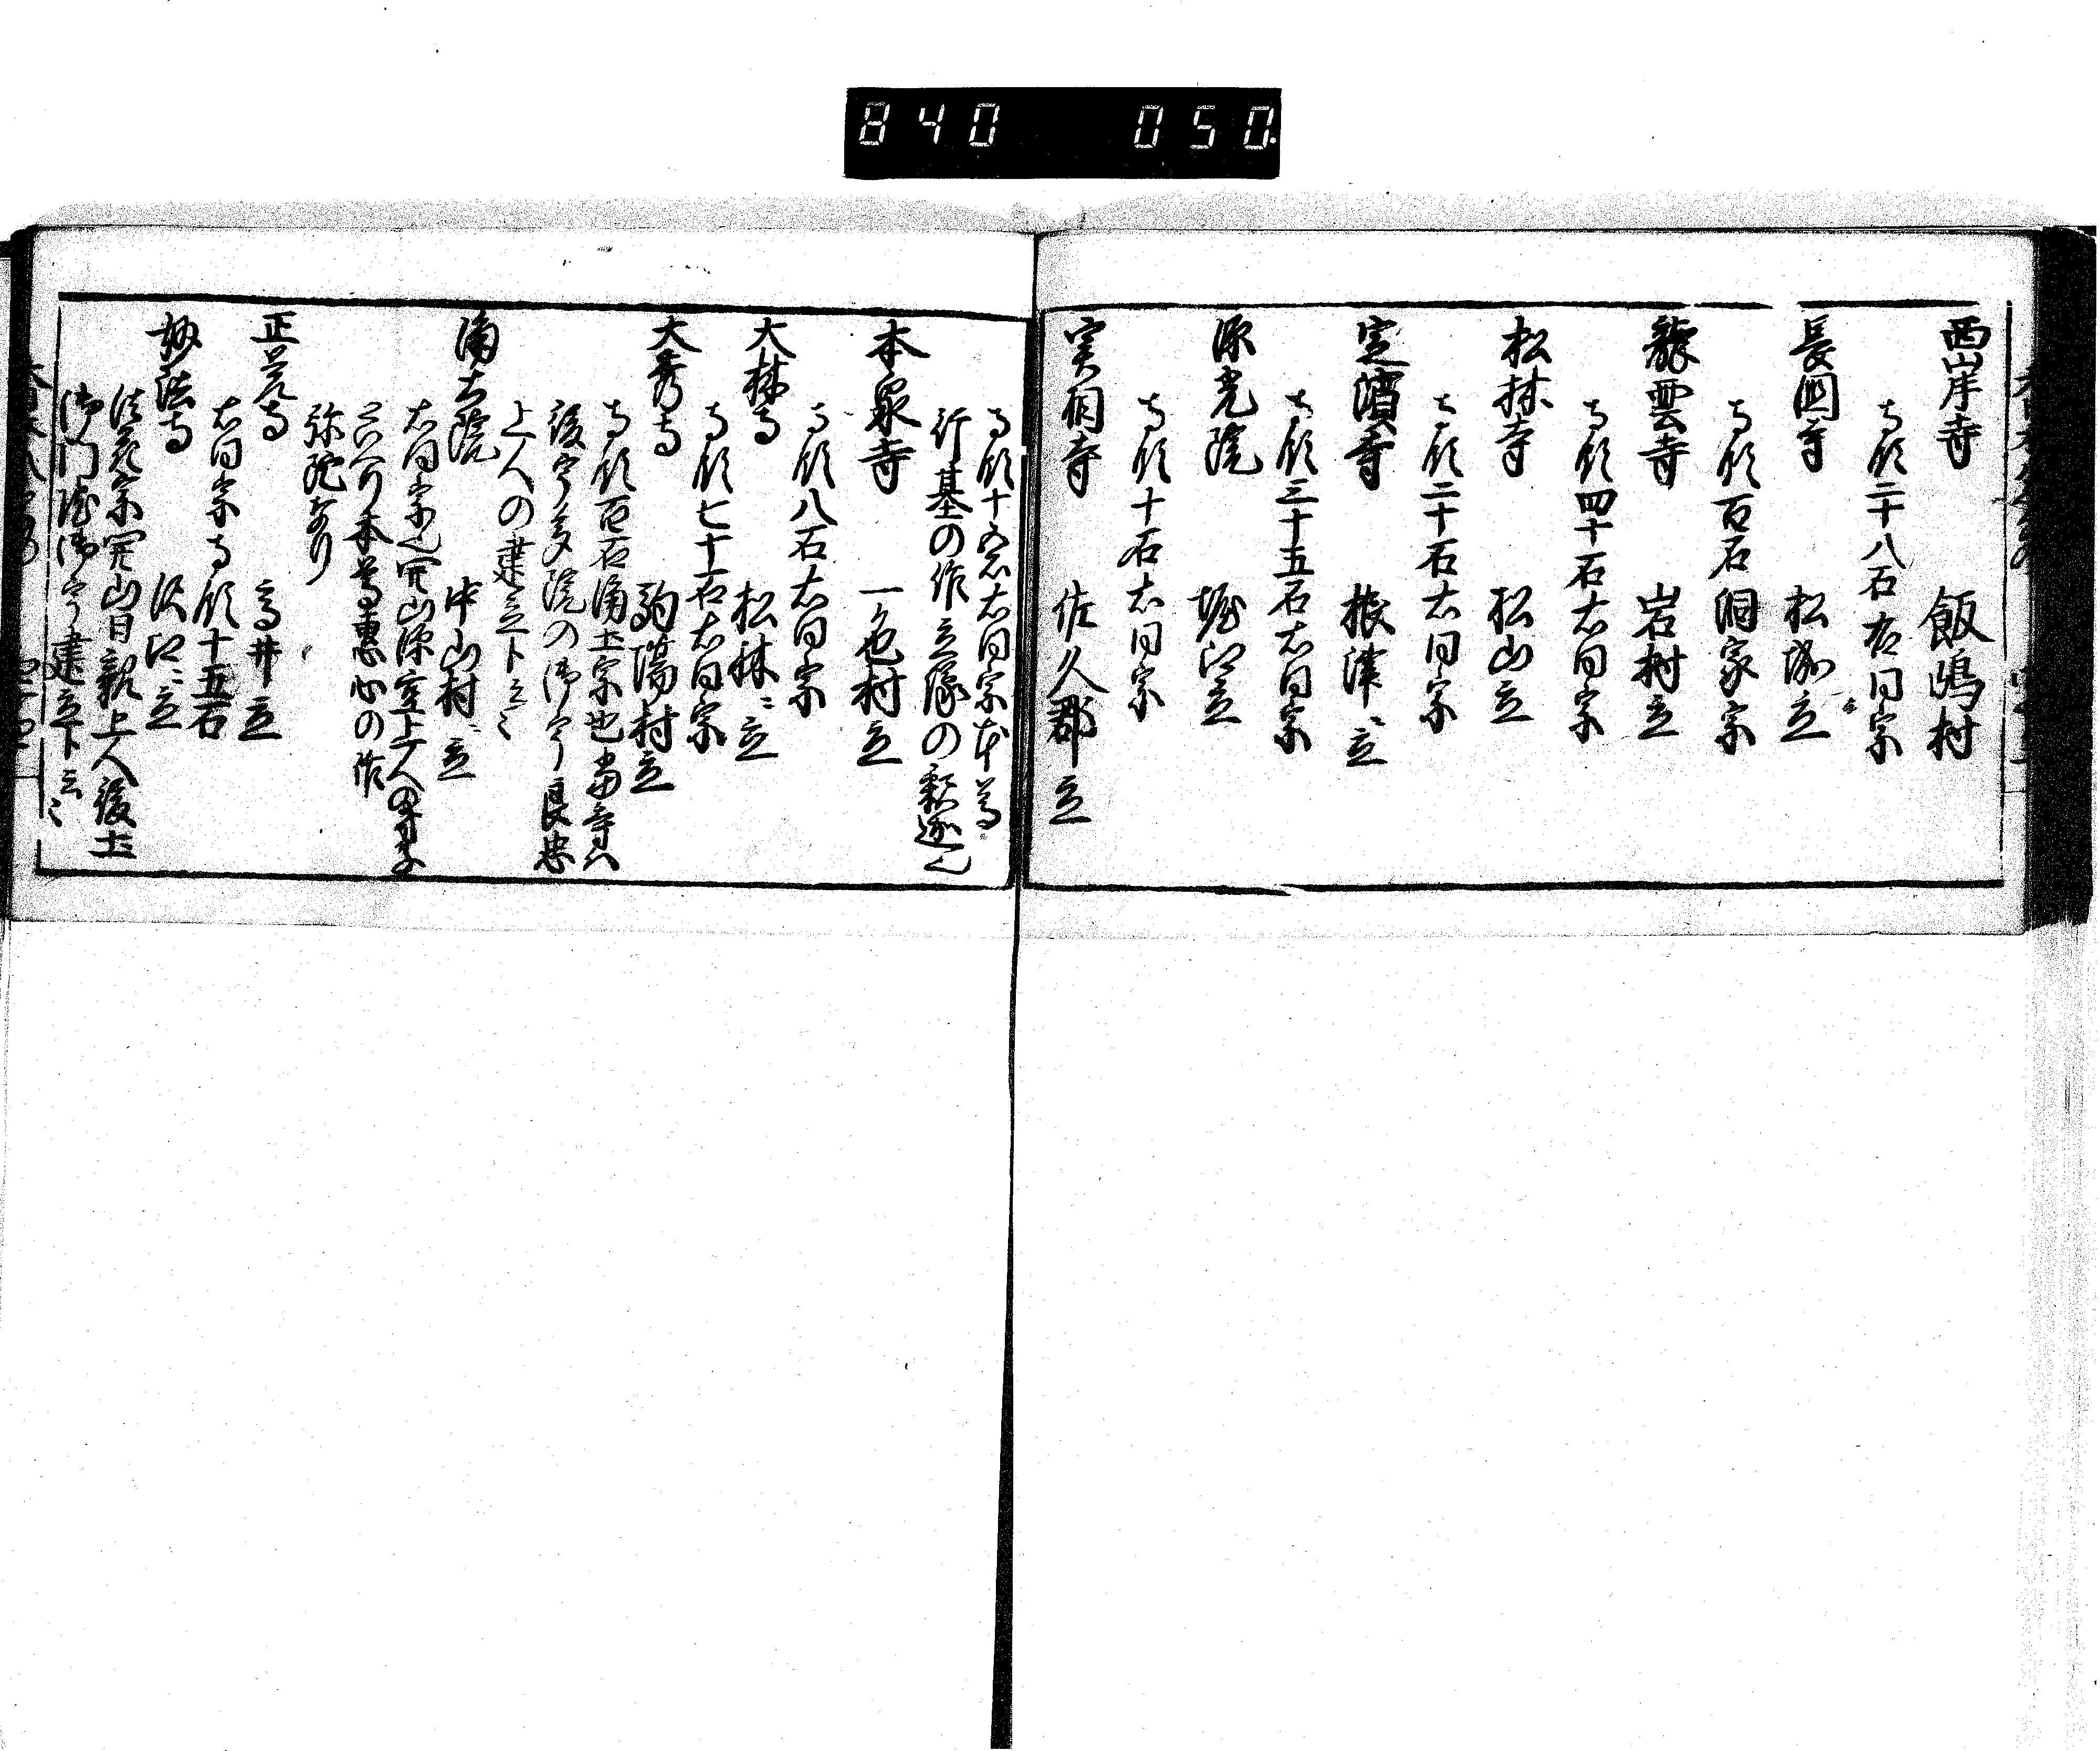 840 050
西岸寺 飯嶋村
寺領二十八石右同宗
長国寺 松城立
寺領百石洞家宗
龍雲寺 岩村立
寺領四十石右同宗
松林寺 松山立
寺領二十石右同宗
定濱寺 根津ニ立
寺領三十五石右同宗
源光院 堀江立
寺領十石右同宗
実相寺 佐久郡立
寺領十五石右同宗本尊
行基の作立像の釈迦也
本泉寺 一色村立
寺領八石右同宗
大林寺 松林ニ立
寺領七十石右同宗
大秀寺 駒場村立
寺領百石浄土宗也当寺ハ
後宇多院の御宇良忠
上人の建立ト云々
浄古院 中山村ニ立
右同宗也開山源空上人の弟子
本尊恵心の作
弥陀なり
正覚寺 高井立
右同宗寺領十五石
妙法寺 ニ立
法花宗開山日親上人後土
御門院御宇建立ト云々